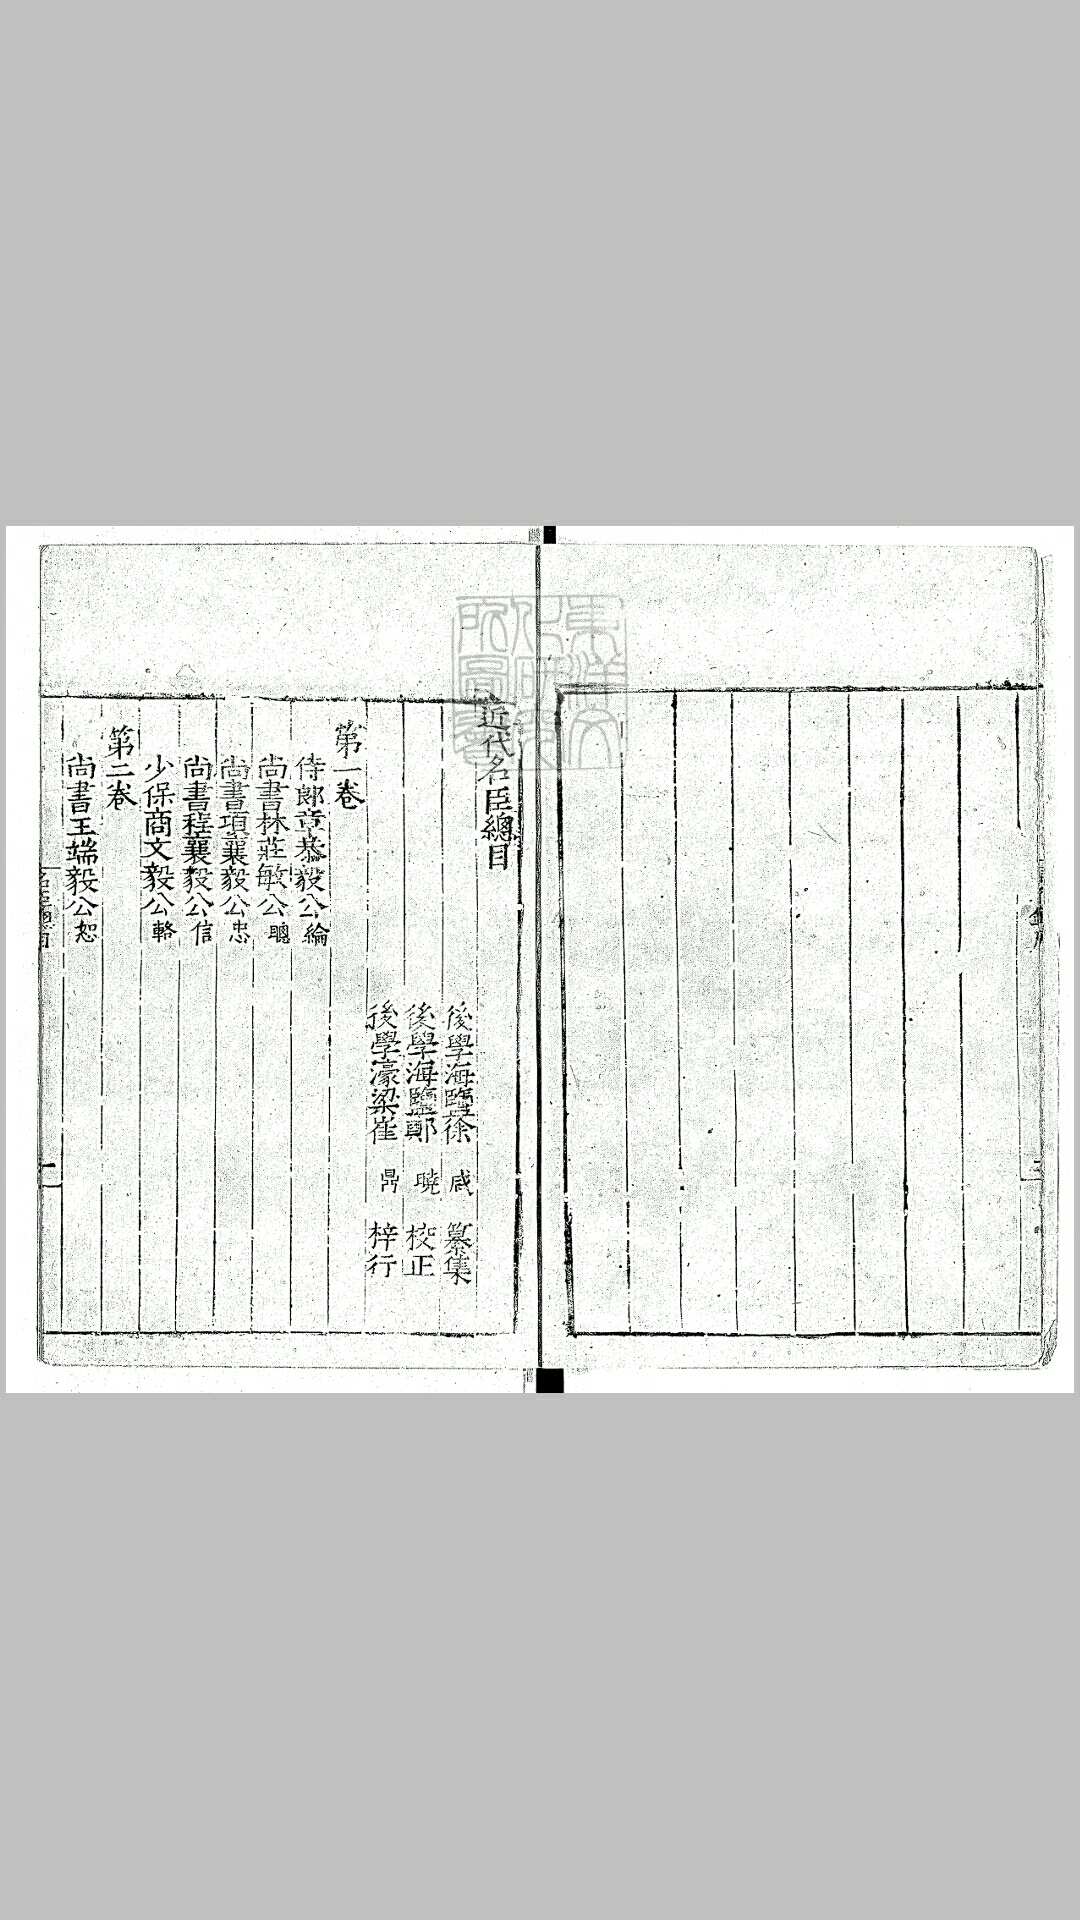 近代名臣總目
後學海鹽徐咸纂集
後學海鹽鄭曉校正
後學濠梁崔鼎梓行
第一卷
侍郎章恭毅公綸
尚書林莊敏公聰
尚書項襄毅公忠
尚書程襄毅公信
少保商文毅公輅
第二卷
尚書王端毅公恕
名臣總目
一